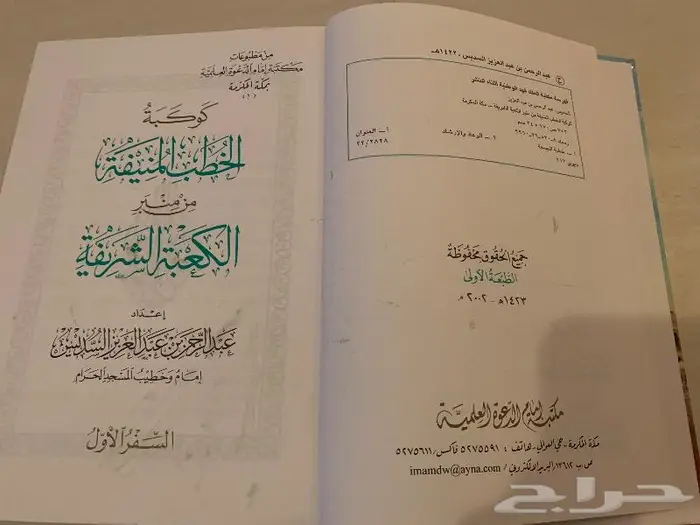 عبد الرحمن بن عبد العزيز السديس، ١٤٢٢هـ
فهرسة مكتبة الملك فهد الوطنية أثناء النشر
السديس، عبد الرحمن بن عبد العزيز
كوكبة الخطب المنيفة من منبر الكعبة الشريفة - مكة المكرمة
١ - خطبة الجمعة
٢ - الوعظ والإرشاد
أ - العنوان
ديوي ٢١٣
٢٢/٢٨٢٨
جميع الحقوق محفوظة
الطبعة الأولى
١٤٢٣هـ - ٢٠٠٢م
مكتبة إمام الدعوة العلمية
مكة المكرمة - حي العوالي - هاتف: ٥٢٧٥٥٩١ فاكس/ ٥٢٧٥٦١١
ص.ب ١٣٦١٢/ البريد الالكتروني/ imamdw@ayna.com
من مطبوعات
مكتبة إمام الدعوة العلمية
بمكة المكرمة
(١)
كوكبة
الخطب المنيفة
من منبر
الكعبة الشريفة
إعداد
عبد الرحمن بن عبد العزيز السديس
إمام وخطيب المسجد الحرام
السفر الأول
حراج